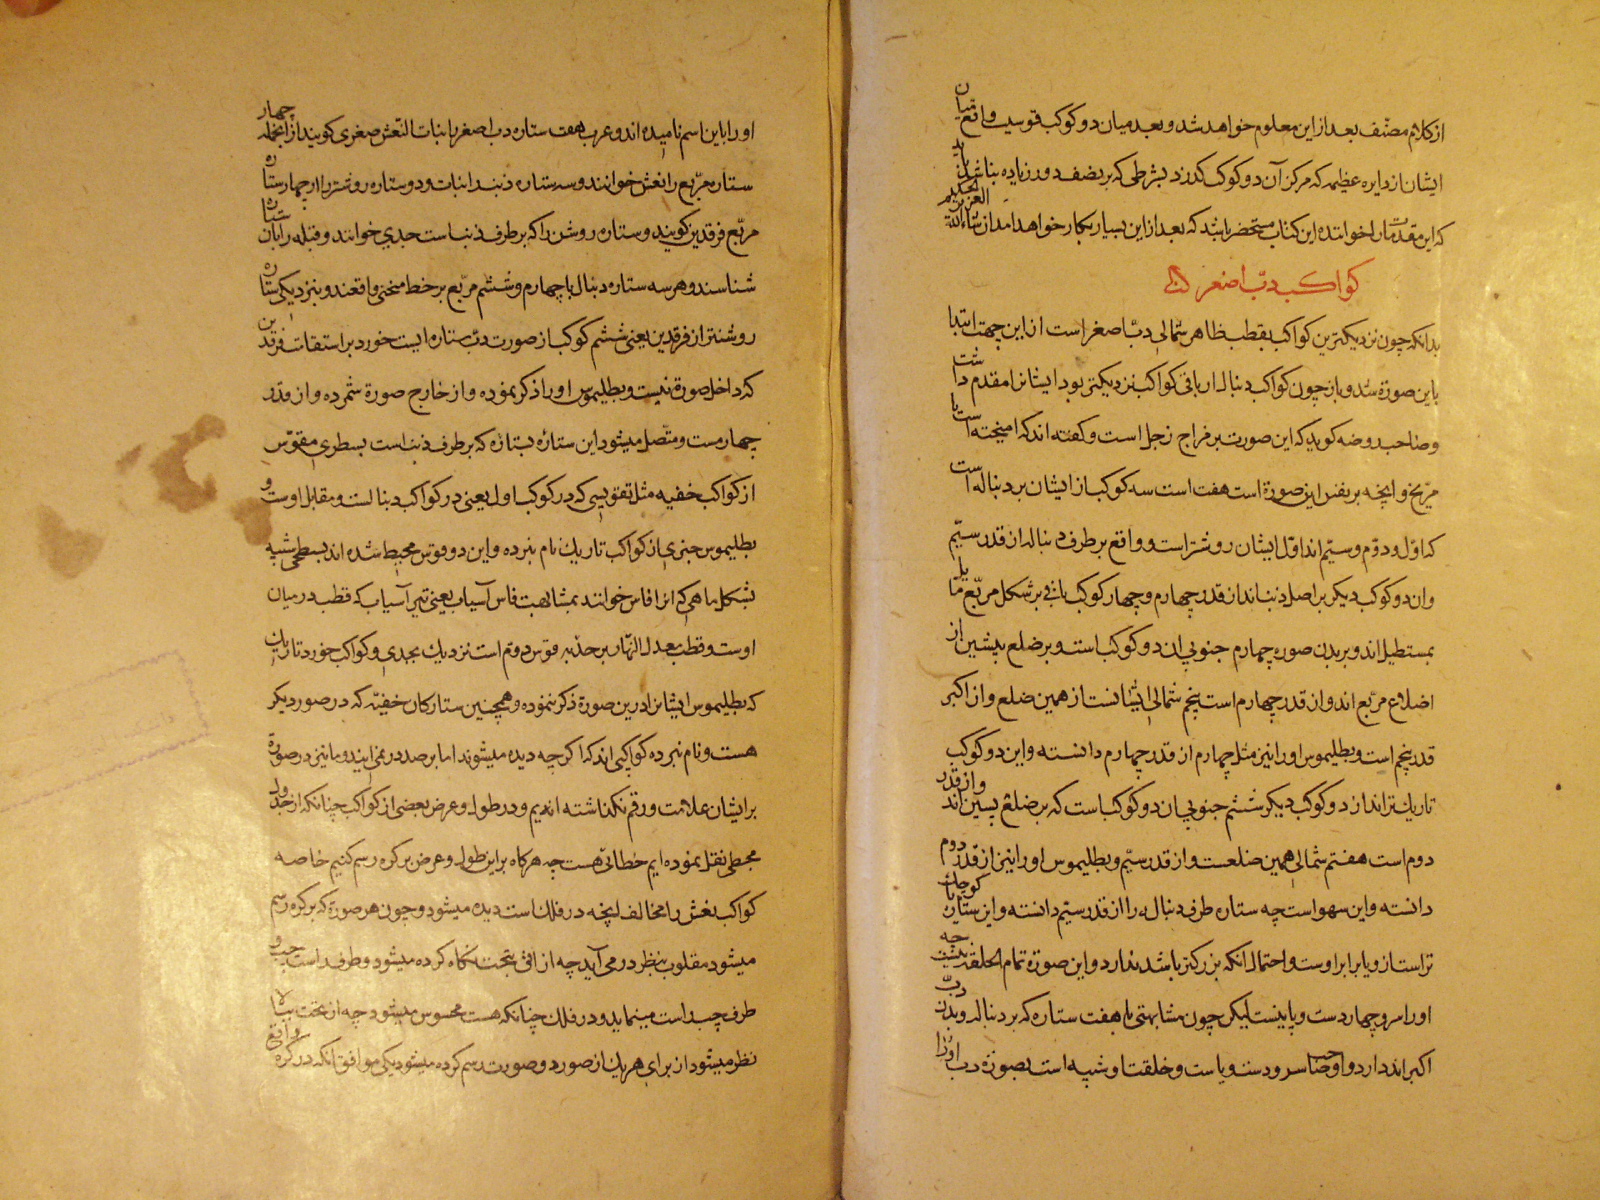 از کلام مصنّف بعد از این معلوم خواهد شد و بعد میان دو کوکب قوسیست واقع میان
ایشان از دایره عظیمه که مرکز آن دو کوکب گذرد بشرطی که بر نصف دور زیاده نباشد باید
که این مقدمات را خواننده این کتاب مستحضر باشد که بعد از این بسیار بکار خواهد آمد ان شاء الله العزیز الحکیم
کواکب دبّ اصغر
بدانکه چون نزدیکترین کواکب بقطب ظاهر شمالی دبّ اصغر است از این جهت ابتدا
باین صورة شد و باز چون کواکب دنباله از باقی کواکب نزدیکتر بود ایشانرا مقدم داشت
و صاحب روضه کوید که این صورت بر مزاج زحل است و کفته اند که امیخته است با
مریخ و آنچه بر نفس این صورة است هفت است سه کوکب از ایشان بر دنباله است
که اوّل و دوّم و سیّم اند اوّل ایشان روشنتر است و واقع بر طرف دنباله از قدر سیّم
و ان دو کوکب دیکر بر اصل دنب اند از قدر چهارم و چهار کوکب باقی بر شکل مربّع مایل
بمستطیل اند و بر بدن صوره چهارم جنوبی ان دو کوکب است و بر ضلع پیشین از
اضلاع مربّع اند و از قدر چهارم است پنجم شمالی ایشانست از همین ضلع و از اکبر
قدر پنجم است و بطلیموس او را نیز مثل چهارم از قدر چهارم دانسته و این دو کوکب
تاریکتر اند از دو کوکب دیکر ششم جنوبی ان دو کوکب است که بر ضلع پسین اند و از قدر
دوم است هفتم شمالی همین ضلعست و از قدر سیّم و بطلیموس او را نیز از قدر دوم
دانسته و این سهو است چه ستاره طرف دنباله را از قدر سیّم دانسته و این ستاره یا کوچک
تر است از او یا برابر اوست و احتمال انکه بزرکتر باشد ندارد و این صورة تمام الخلقه نیست چه
او را سر و چهار دست و پا نیست لیکن چون مشابهتی با هفت ستاره که بر دنباله و بدن دبّ
اکبر اند دارد و سر و دست و پاست و خلقت او شبیه است بصورة دب او را
او را باین اسم نامیده اند و عرب هفت ستاره دب اصغر را بنات النّعش صغری کویند از انجمله چهار
ستاره مربّع را نعش خوانند و سه ستاره ذنب را بنات و دو ستاره روشنتر را از چهار ستاره
مربّع فرقدین کویند و ستاره روشن را که بر طرف ذنب است جدی خوانند و قبله را بآن ستاره
شناسند و هر سه ستاره دنبال با چهارم و ششم مربّع بر خط منحنی واقعند و بنزدیکی ستاره
روشنتر از فرقدین یعنی ششم کوکب از صورت دب ستاره ایست خورد بر استقامت فرقدین
که داخل صورة نیست و بطلیموس او را ذکر نموده و از خارج صورة شمرده و از قدر
چهارمست و متّصل میشود این ستاره بستاره که بر طرف ذنب است بسطری مقوّس
از کواکب خفیه مثل تقویسی که در کوکب اول یعنی در کواکب دنبال است و مقابل اوست و
بطلیموس چیزی از کواکب تاریک نام نبرده و این دو قوس محیط شده اند بسطحی شبیه
بشکل ماهی که انرا فاس خوانند بمشابهت فاس آسیاب یعنی تیر آسیاب که قطب در میان
اوست و قطب معدل النّهار بر حدبه قوس دوّم است نزدیک بجدی و کواکب خورد تاریک
که بطلیموس ایشانرا در این صورة ذکر ننموده و همچنین ستارکان خفیّه که در صور دیکر
هست و نام نبرده کواکبی اند که اکر چه دیده میشوند اما برصد در نمی آیند و ما نیز در صورة
بر ایشان علامت و رقم نکذاشته ایم و در طول و عرض بعضی از کواکب چنانکه از جدول
مجسطی نقل نموده ایم خطائی هست چه هرکاه بر این طول و عرض بر کره رسم کنیم خاصه
کواکب نعش را مخالف انچه در فلک است دیده میشود و چون هر صورة که بر کره رسم
میشود مقلوب بنظر در می آید چه از فوق بتحت نکاه کرده میشود و طرف راست چپ و
طرف چپ راست مینماید و در فلک چنانکه هست محسوس میشود چه از تحت ببالا
نظر میشود از برای هر یک از صور دو صورت رسم کرده میشود یکی موافق آنکه در کره واقع